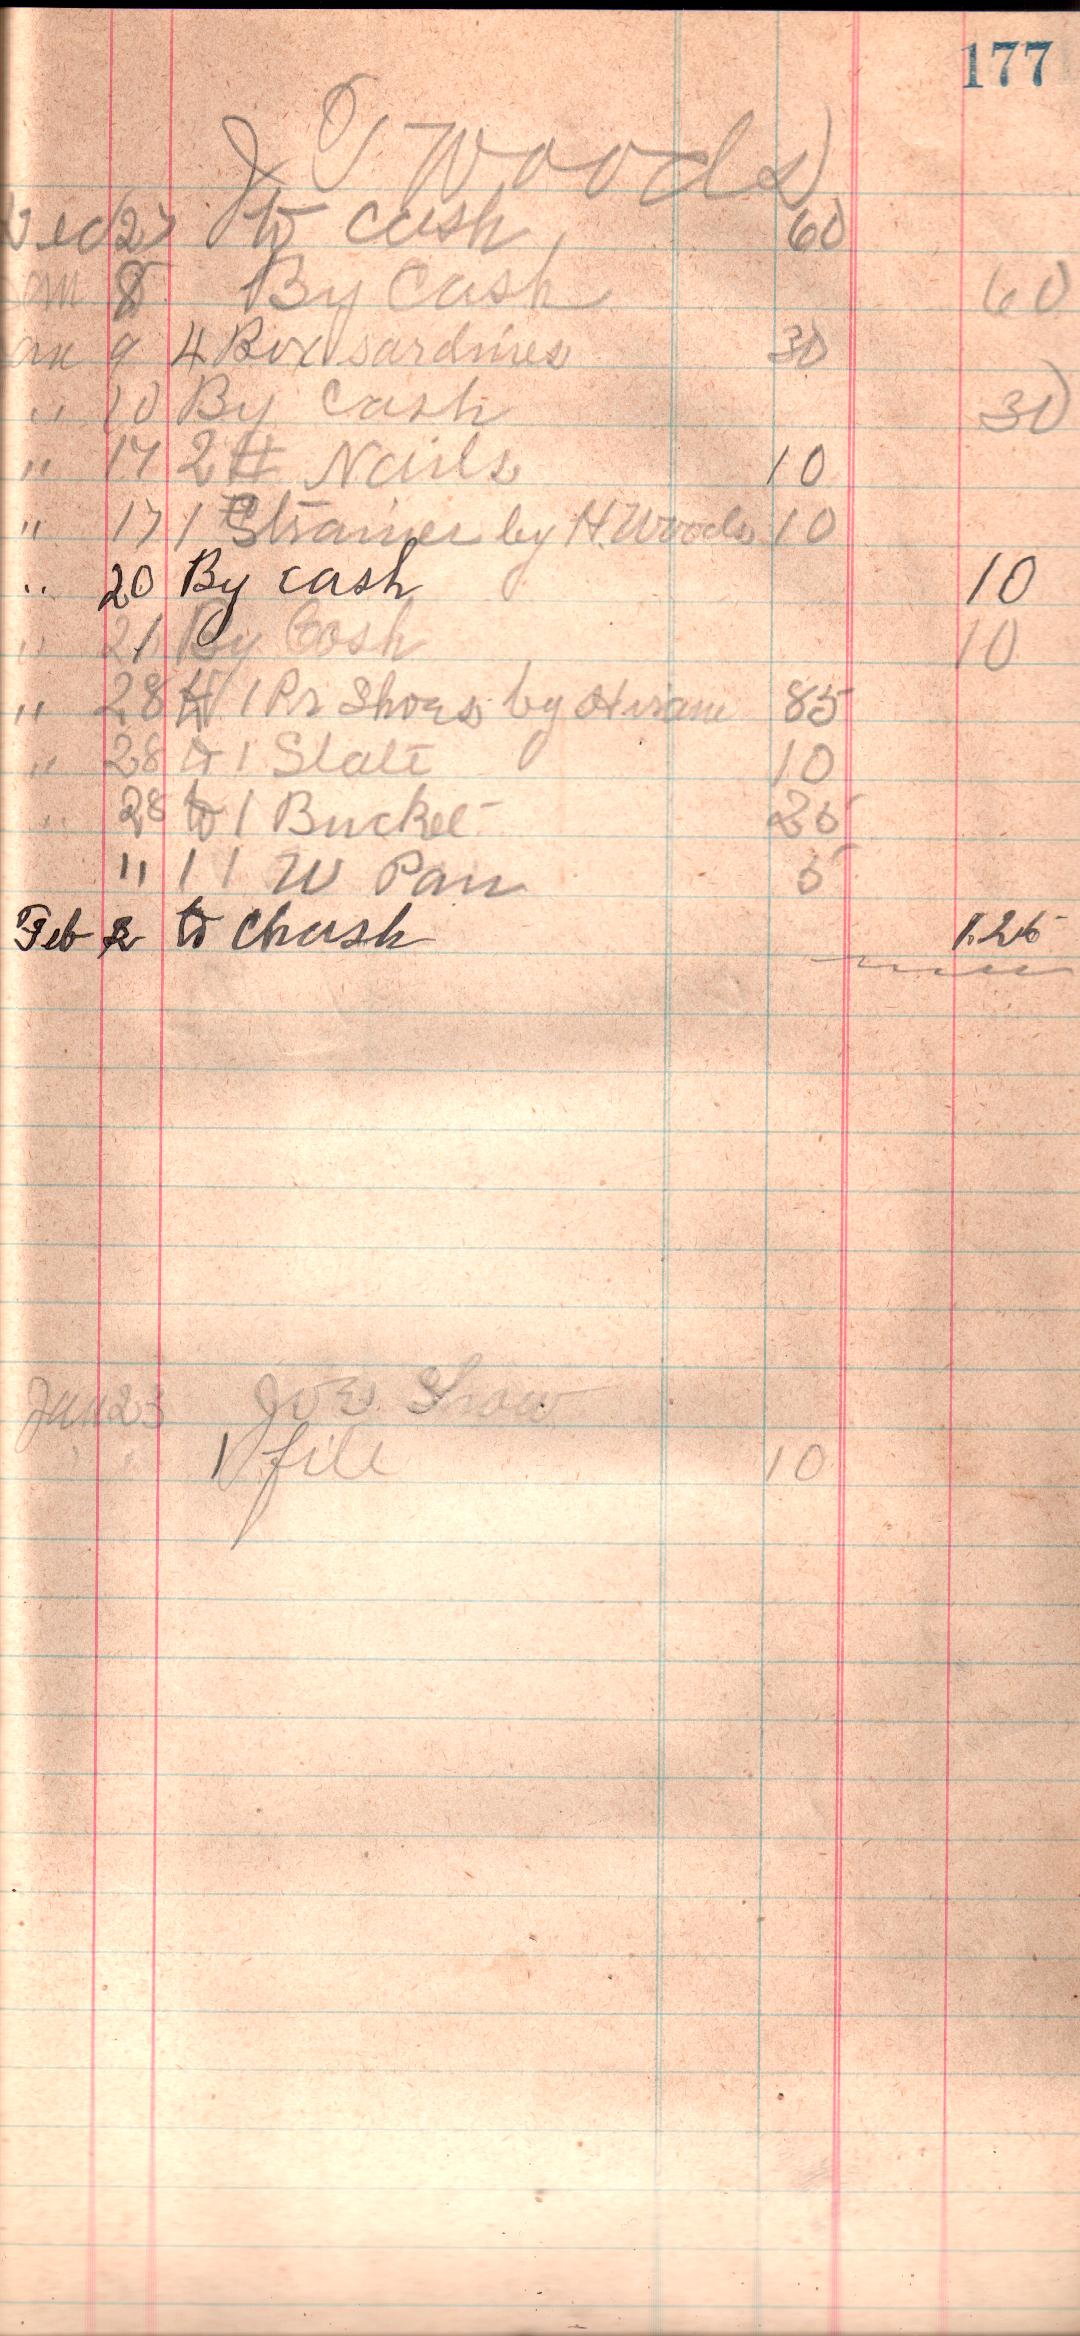 177
J T Woods
Dec 27 to cash 60
Jan 8 By Cash 60
Jan 9 4 Box sardines 30
" 10 By Cash 30
" 17 2 # Nails 10
" 17 1 Strainer by H. Woods 10
" 20 By cash 10
" 21 By Cash 10
" 28 to 1 Pr Shoes by Hiram 85
" 28 to 1 Slate 10
" 28 to 1 Bucket 25
" 1 1 W Pan 5
Feb 2 to Chash 1.25
Jan 23 Joe Show
" " 1 file 10